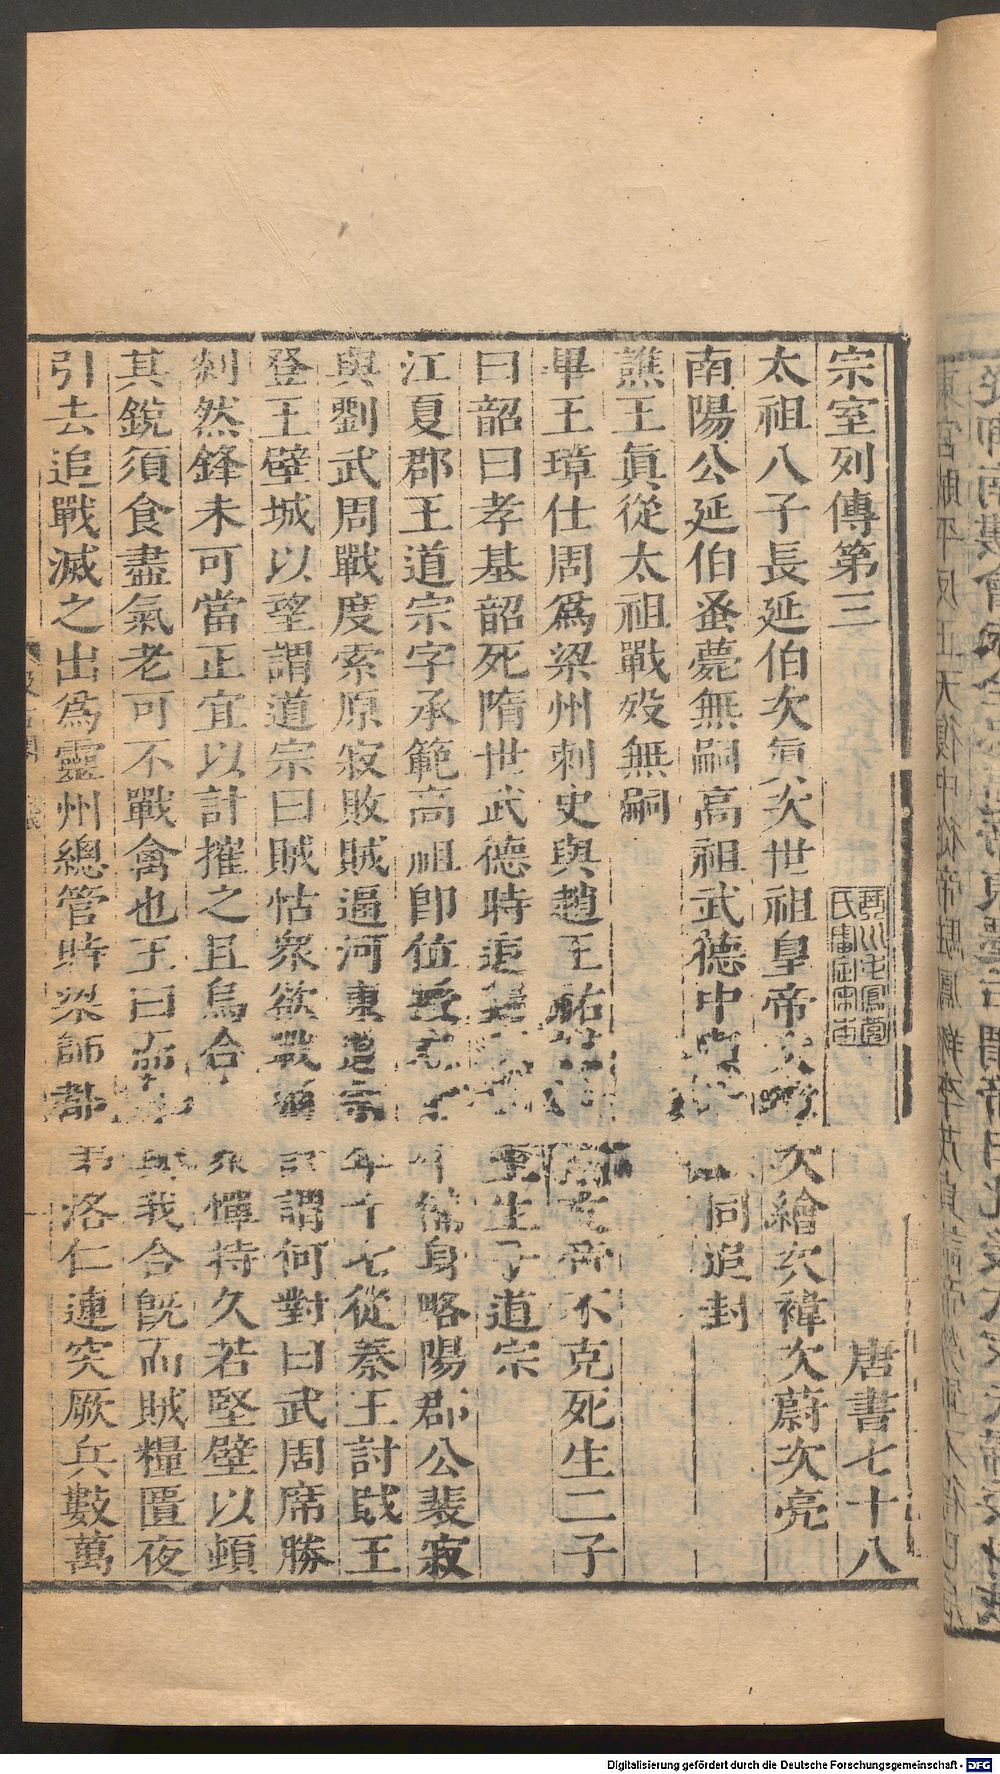 宗室列傳第三 唐書七十八
太祖八子長延伯次眞次世祖皇帝次 次繪次禕次蔚次亮
南陽公延伯蚤薨無嗣高祖武德中 同追封
譙王眞從太祖戰歿無嗣
畢王璋仕周爲梁州刺史與趙王祐 文帝不克死生二子
曰韶曰孝基韶死隋世武德時追 王生子道宗
江夏郡王道宗字承範高祖卽位授 儀身略陽郡公裴寂
與劉武周戰度索原寂敗賊逼河東道宗年十七從秦王討賊王
登王壁城以望謂道宗曰賊怙衆欲戰 謂何對曰武周席勝
剡然鋒未可當正宜以計摧之且烏合 憚持久若堅壁以頓
其銳須食盡氣老可不戰禽也王曰而 與我合旣而賊糧匱夜
引去追戰滅之出爲靈州總管時梁師都 弟洛仁連突厥兵數萬
Digitalisierung gefördert durch die Deutsche Forschungsgemeinschaft - DFG